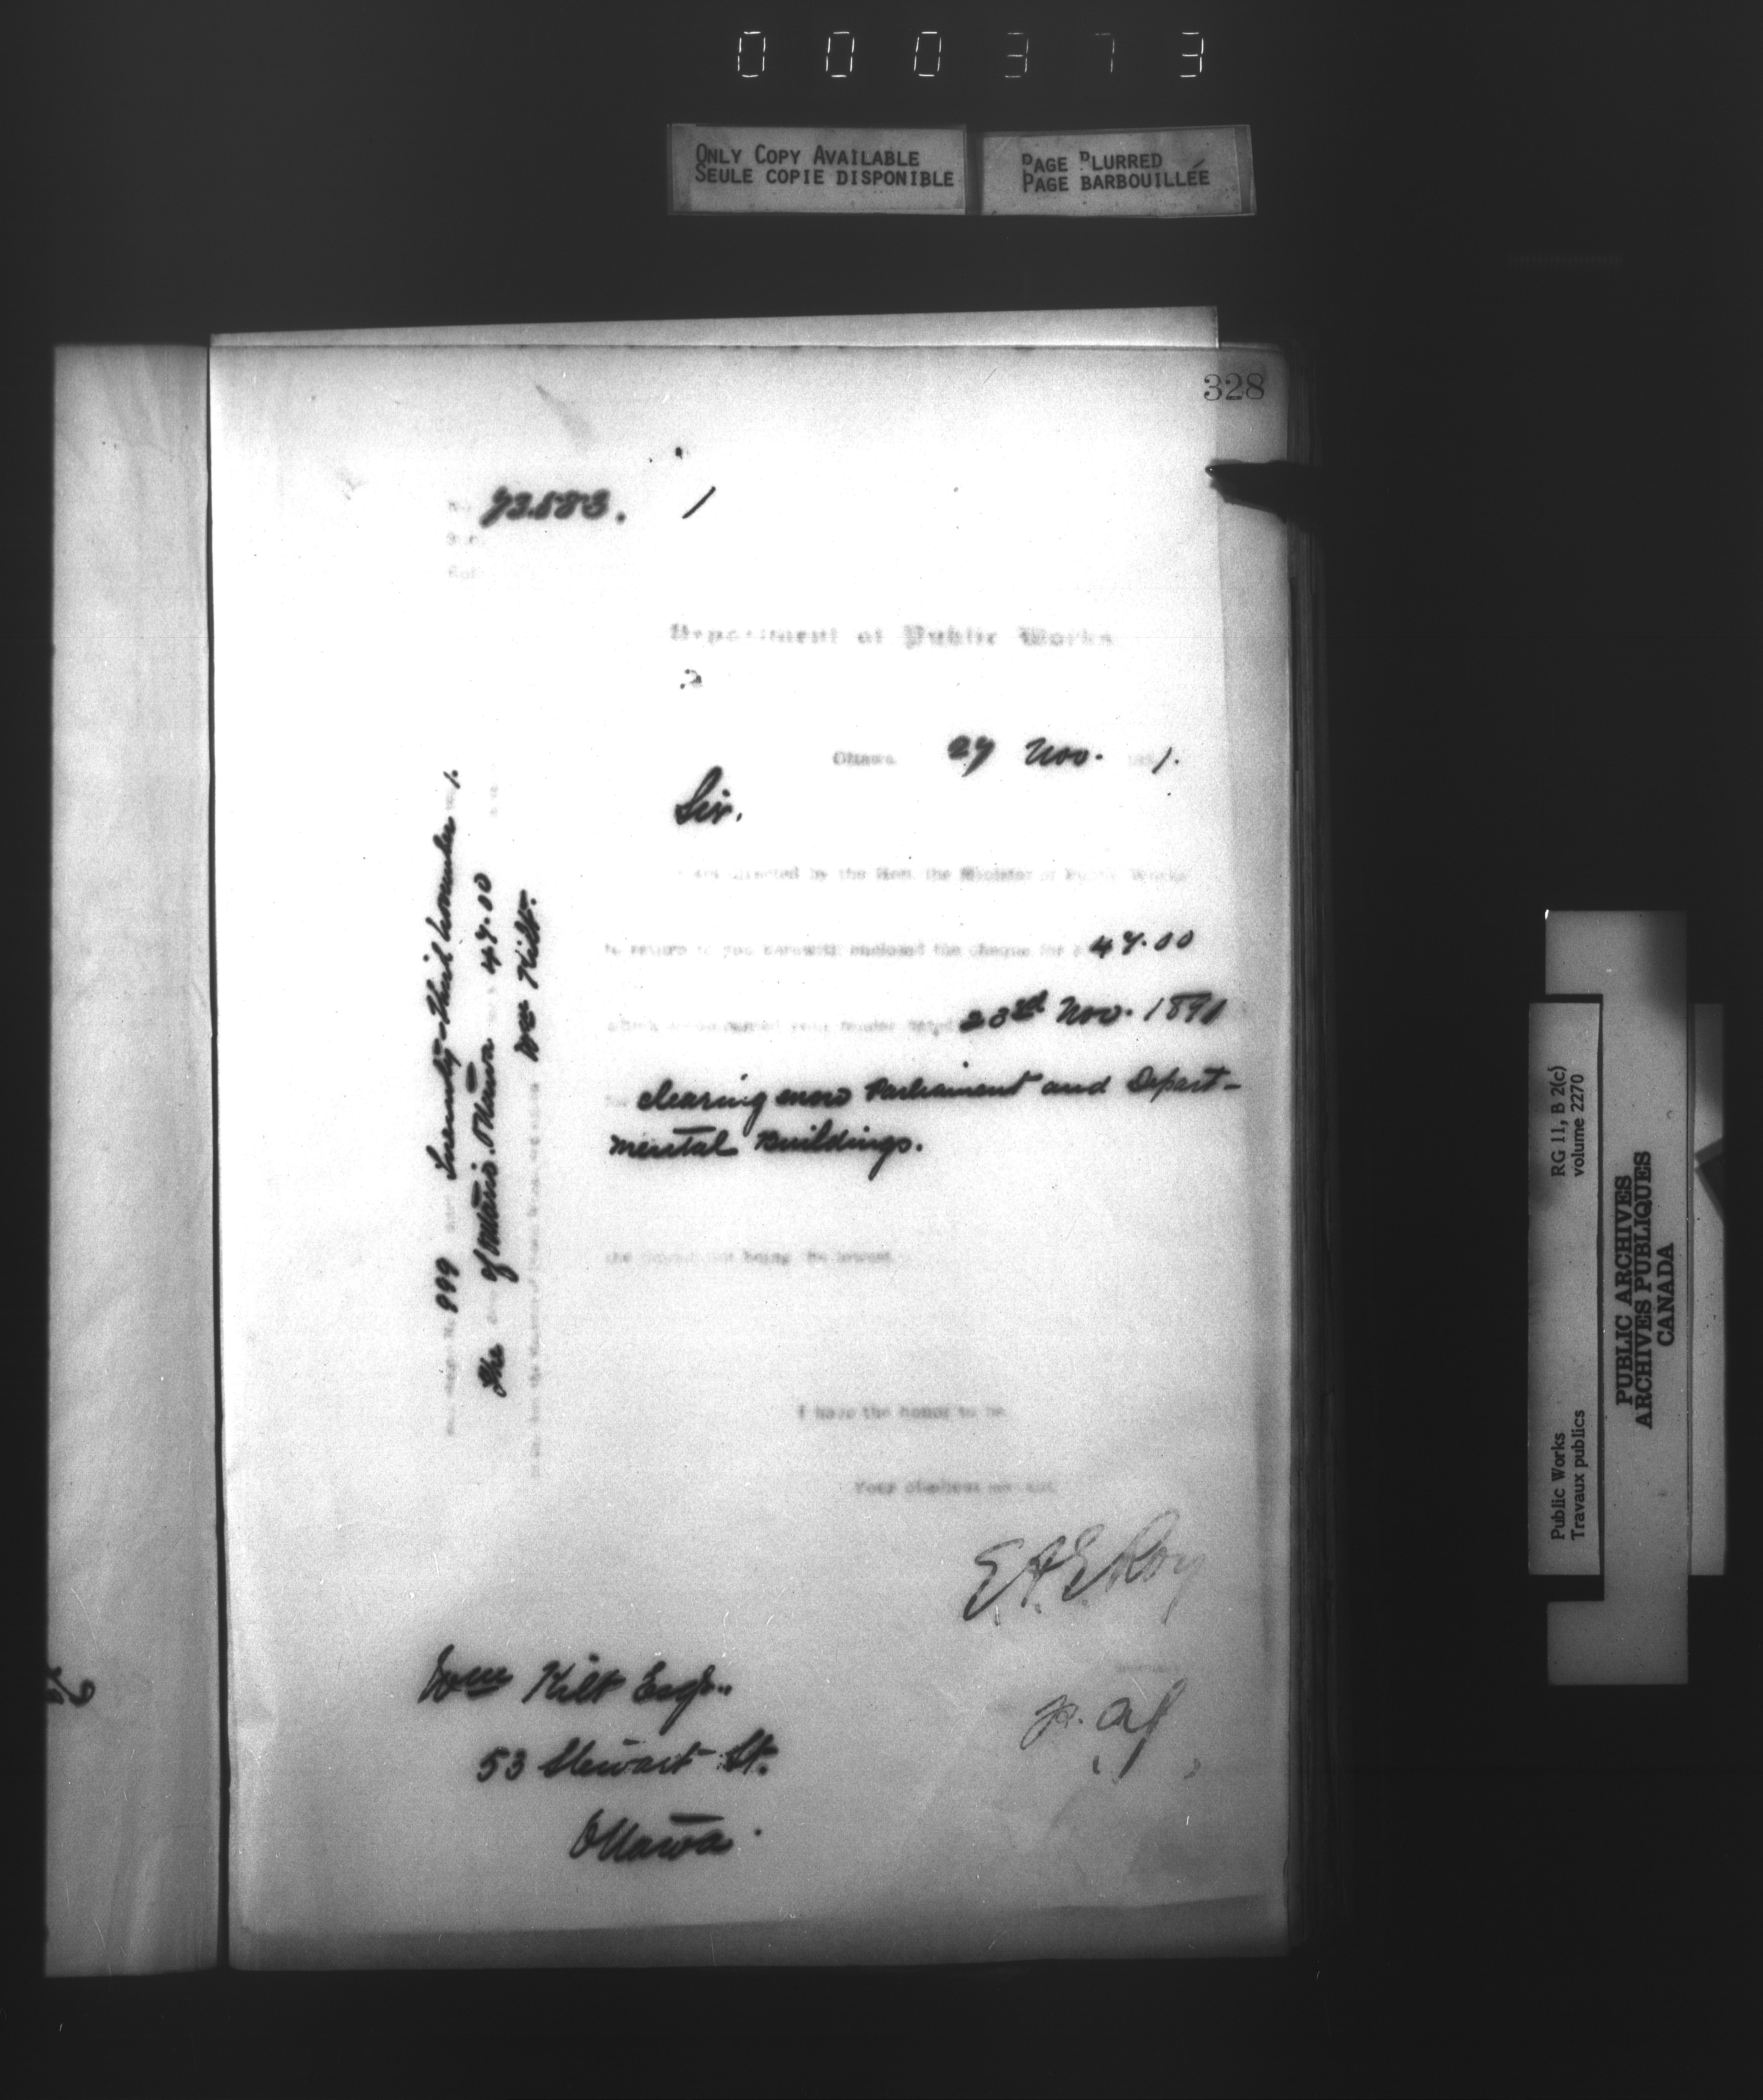 000373
ONLY COPY AVAILABLE
SEULE COPIE DISPONIBLE
PAGE BLURRED
PAGE BARBOUILLÉE
328
No. 73.583. 1
Sub.
Ref.
Department of Public Works
Ottawa 27 Nov. 1891.
Sir,
I am directed by the Hon. the Minister of Public Works
to return to you herewith enclosed the cheque for $ 47.00
which accompanied your tender dated 23rd Nov. 1891
for clearing snow Parliament and Depart-
mental Buildings.
the same not being the lowest
I have the honor to be
Your obedient servant
E.A.E. Roy
Secretary
Wm Kilt Esqr.
53 Stewart St.
Ottawa.
999 Twenty-third November 1.
The of Ontario. Ottawa 47.00
Wm Kilt.
Public Works
Travaux publics
RG 11, B 2(c)
volume 2270
PUBLIC ARCHIVES
ARCHIVES PUBLIQUES
CANADA